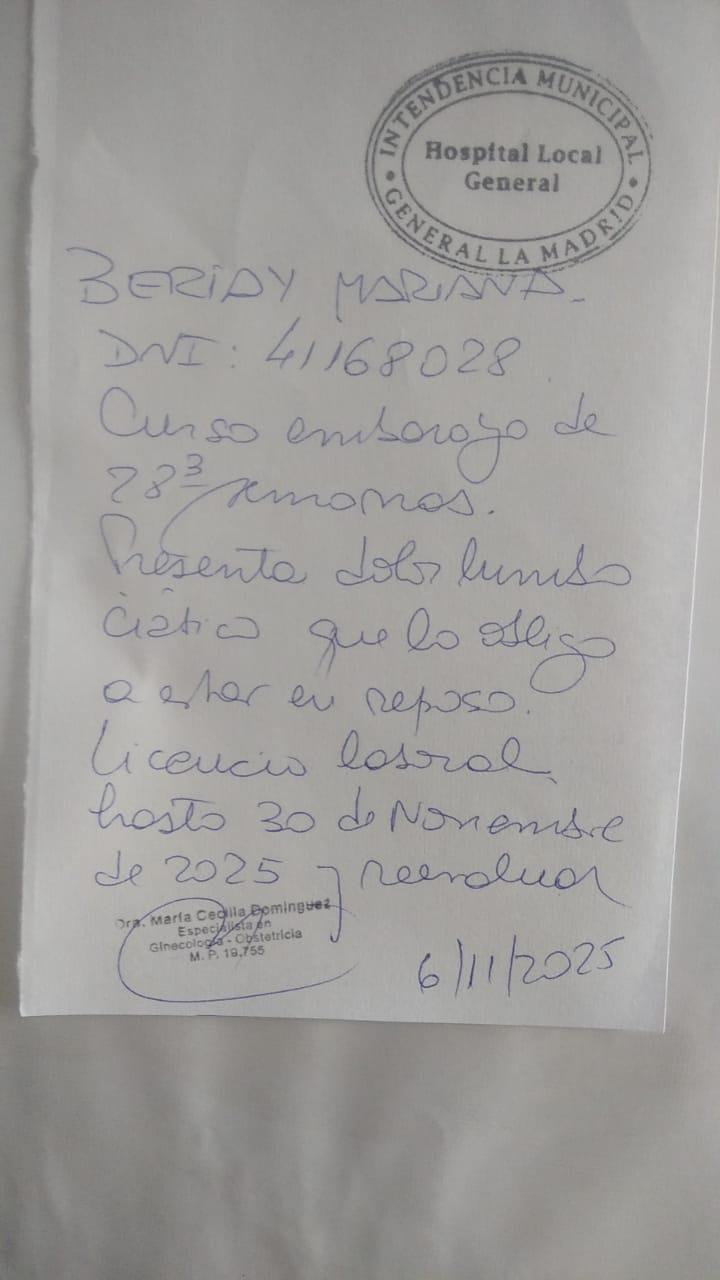 INTENDENCIA MUNICIPAL
Hospital Local
General
GENERAL LA MADRID
BERIAY MARIANA.
DNI: 41168028
Curso embarazo de
28³ semanas.
Presenta dolor lumbo
ciático que la obliga
a estar en reposo.
Licencia laboral
hasta 30 de Noviembre
de 2025 y reevaluar
Dra. María Cecilia Dominguez
Especialista en
Ginecología - Obstetricia
M. P. 19.755
6/11/2025